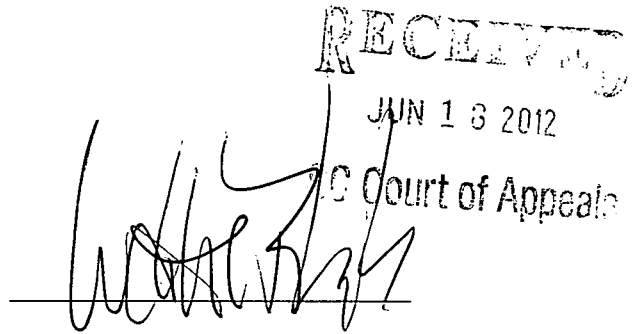 RECEIVED
JUN 1 8 2012
SC Court of Appeals